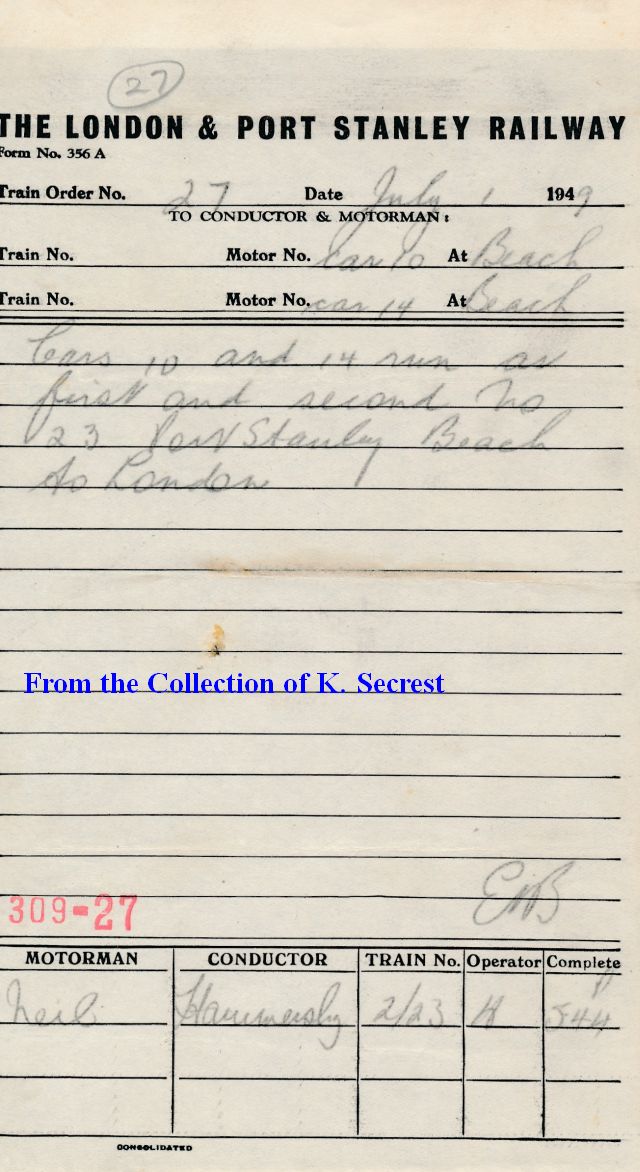 27
THE LONDON & PORT STANLEY RAILWAY
Form No. 356 A
Train Order No. 27 Date July 1 1949
TO CONDUCTOR & MOTORMAN:
Train No. Motor No. car 10 At Beach
Train No. Motor No. car 14 At Beach
Cars 10 and 14 run as
first and second No
23 Port Stanley Beach
to London
From the Collection of K. Secrest
309-27
MOTORMAN CONDUCTOR TRAIN No. Operator Complete
Neil Hammersly 2/23 H 544
CONSOLIDATED